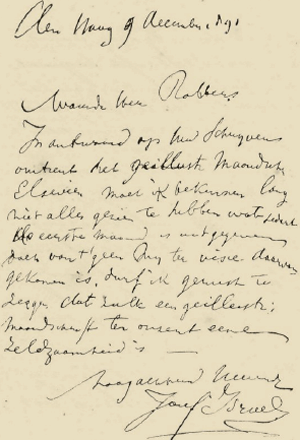 Den Haag 9 December 1891
Waarde Heer Robbers
In antwoord op Uw Schrijvens
omtrent het geillustr Maandschr
Elsevier moet ik bekennen lang
niet alles gezien te hebben wat sedert
de eerste maand is uitgegeven
daar van geen ter visie daarvan
gekomen is, durf ik gerust te
zeggen dat zulk een geillustr:
maandschrift ten onzent eene
zeldzaamheid is —
Hoogachtend
Jozef Israels